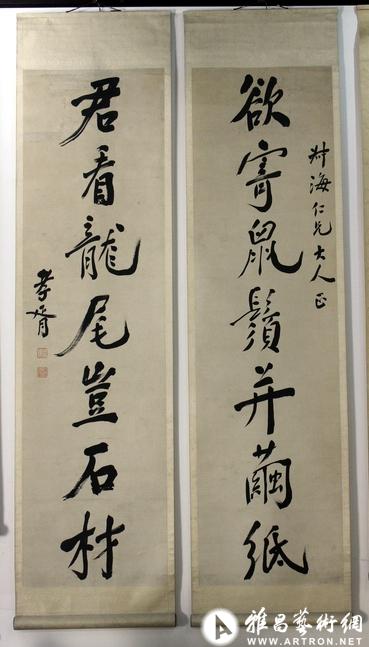 欲寄鼠鬚并繭紙
海仁兄大人正
君看龍尾豈石材
孝胥
雅昌藝術網
WWW.ARTRON.NET